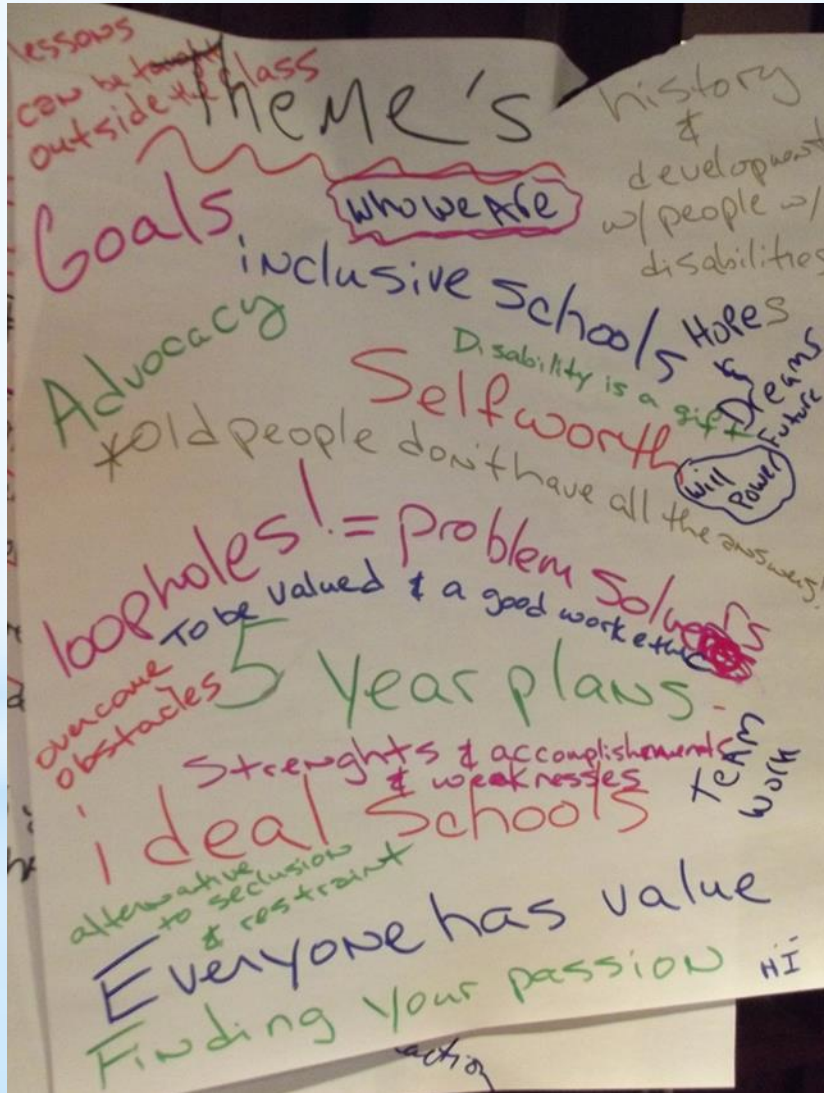 lessons
can be taught
outside the class
Theme's
history
&
development
w/ people w/
disabilities
Goals
who we are
inclusive schools
Hopes
&
Dreams
future
Advocacy
Disability is a gift
Self worth
will
power
*Old people don't have all the answers!
loopholes! = problem solvers
To be valued & a good work ethic
overcome
obstacles
5 year plans
Strenghts & accomplishments
& weaknesses
TEAM
work
ideal Schools
alternative
to seclusion
& restraint
Everyone has value
Finding your passion
HI
action